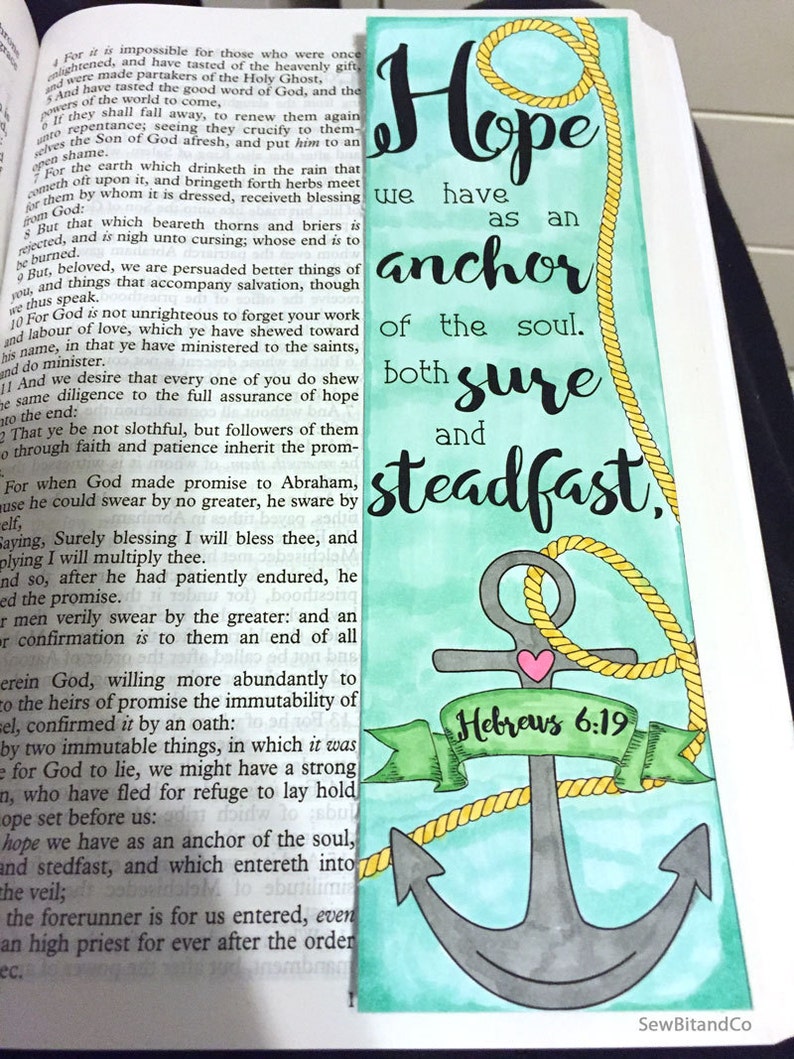 4 For it is impossible for those who were once
enlightened, and have tasted of the heavenly gift,
and were made partakers of the Holy Ghost,
5 And have tasted the good word of God, and the
powers of the world to come,
6 If they shall fall away, to renew them again
unto repentance; seeing they crucify to them-
selves the Son of God afresh, and put him to an
open shame.
7 For the earth which drinketh in the rain that
cometh oft upon it, and bringeth forth herbs meet
for them by whom it is dressed, receiveth blessing
from God:
8 But that which beareth thorns and briers is
rejected, and is nigh unto cursing; whose end is to
be burned.
9 But, beloved, we are persuaded better things of
you, and things that accompany salvation, though
we thus speak.
10 For God is not unrighteous to forget your work
and labour of love, which ye have shewed toward
his name, in that ye have ministered to the saints,
and do minister.
11 And we desire that every one of you do shew
he same diligence to the full assurance of hope
nto the end:
2 That ye be not slothful, but followers of them
o through faith and patience inherit the prom-
s.
For when God made promise to Abraham,
ause he could swear by no greater, he sware by
self,
Saying, Surely blessing I will bless thee, and
plying I will multiply thee.
nd so, after he had patiently endured, he
ed the promise.
r men verily swear by the greater: and an
r confirmation is to them an end of all
erein God, willing more abundantly to
to the heirs of promise the immutability of
sel, confirmed it by an oath:
by two immutable things, in which it was
e for God to lie, we might have a strong
n, who have fled for refuge to lay hold
ope set before us:
hope we have as an anchor of the soul,
and stedfast, and which entereth into
the veil;
the forerunner is for us entered, even
an high priest for ever after the order
ec.
Hope
we have
as an
anchor
of the soul.
both sure
and
steadfast,
Hebrews 6:19
SewBitandCo